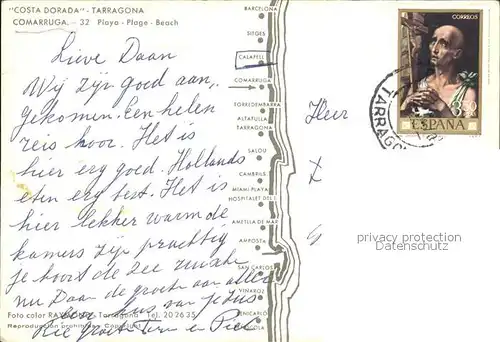 "COSTA DORADA" - TARRAGONA
COMARRUGA. - 32 Playa - Plage - Beach
Lieve Daan
Wij zijn goed aan,
gekomen. Een helen
reis hoor. Het is
hier erg goed. Hollands
eten erg best. Het is
hier lekker warm de
kamers zijn prachtig
je hoort de zee
nu Daan de groeten aan allen
een kus van je Zus
en Piet
Foto color Tarragona Tel. 20 26 35
BARCELONA
SITGES
CALAFELL
COMARRUGA
TORREDEMBARRA
ALTAFULLA
TARRAGONA
SALOU
CAMBRILS
MIAMI PLAYA
HOSPITALET DEL I.
AMETLLA DE MAR
AMPOSTA
SAN CARLOS
VINAROZ
BENICARLO
Heer
CORREOS
ESPAÑA
TARRAGO
privacy protection
Datenschutz